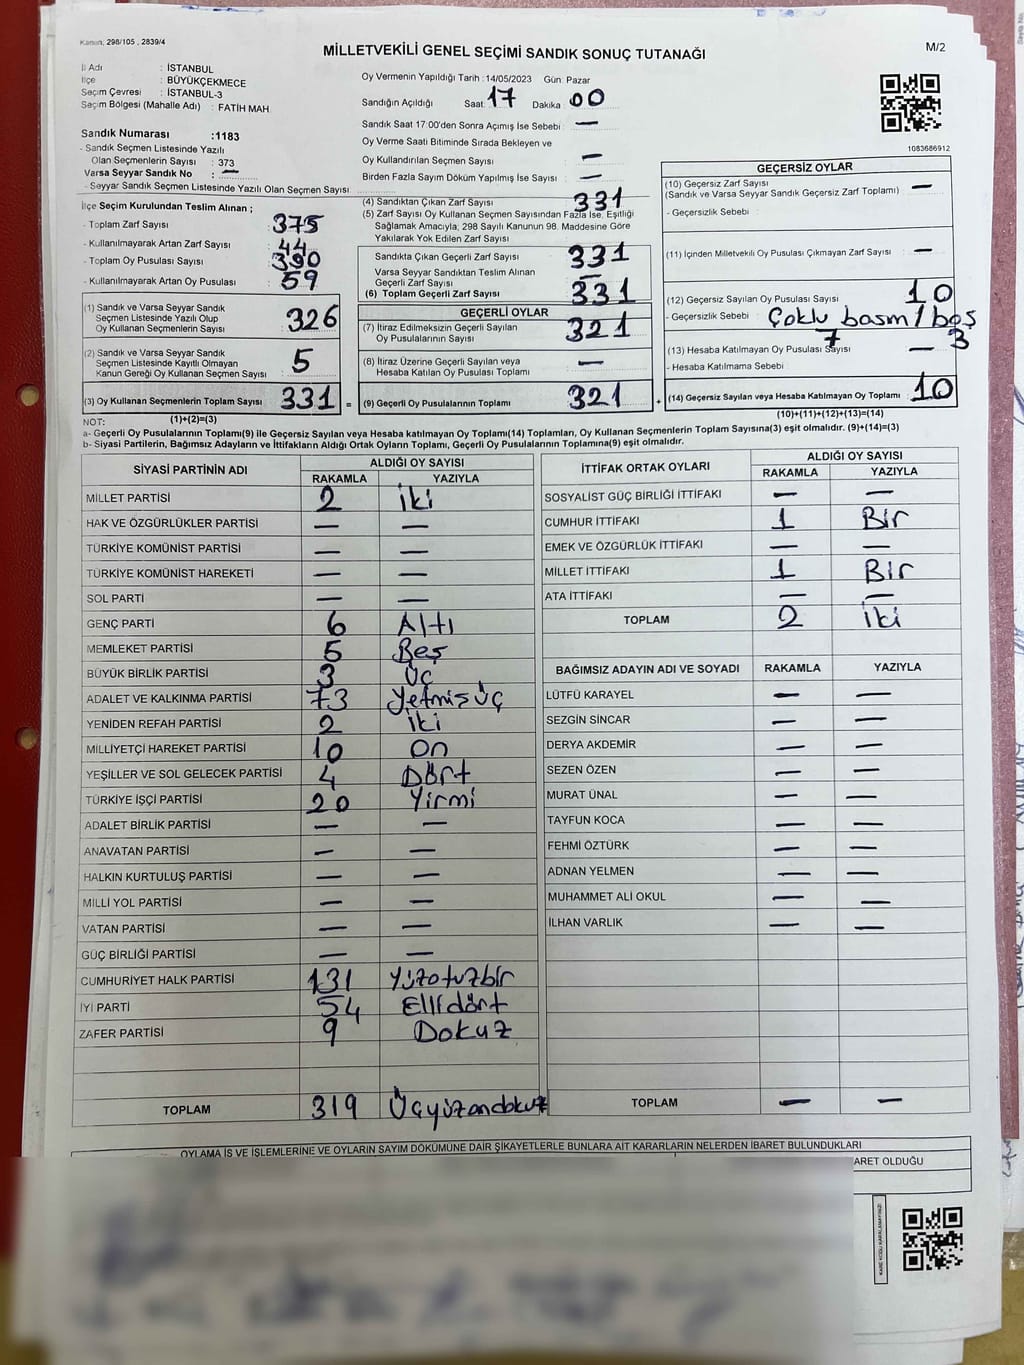 Kanun; 298/105 , 2839/4
MİLLETVEKİLİ GENEL SEÇİMİ SANDIK SONUÇ TUTANAĞI
M/2
İl Adı : İSTANBUL
İlçe : BÜYÜKÇEKMECE
Seçim Çevresi : İSTANBUL-3
Seçim Bölgesi (Mahalle Adı) : FATİH MAH.
Sandık Numarası :1183
- Sandık Seçmen Listesinde Yazılı
Olan Seçmenlerin Sayısı : 373
Varsa Seyyar Sandık No : —
- Seyyar Sandık Seçmen Listesinde Yazılı Olan Seçmen Sayısı
Oy Vermenin Yapıldığı Tarih :14/05/2023 Gün: Pazar
Sandığın Açıldığı Saat: 17 Dakika: 00
Sandık Saat 17:00'den Sonra Açımış İse Sebebi : —
Oy Verme Saati Bitiminde Sırada Bekleyen ve
Oy Kullandırılan Seçmen Sayısı —
Birden Fazla Sayım Döküm Yapılmış İse Sayısı : —
1083686912
İlçe Seçim Kurulundan Teslim Alınan ;
- Toplam Zarf Sayısı : 375
- Kullanılmayarak Artan Zarf Sayısı : 44
- Toplam Oy Pusulası Sayısı : 390
- Kullanılmayarak Artan Oy Pusulası : 59
(1) Sandık ve Varsa Seyyar Sandık
Seçmen Listesinde Yazılı Olup
Oy Kullanan Seçmenlerin Sayısı : 326
(2) Sandık ve Varsa Seyyar Sandık
Seçmen Listesinde Kayıtlı Olmayan
Kanun Gereği Oy Kullanan Seçmen Sayısı : 5
(3) Oy Kullanan Seçmenlerin Toplam Sayısı : 331 =
(4) Sandıktan Çıkan Zarf Sayısı 331
(5) Zarf Sayısı Oy Kullanan Seçmen Sayısından Fazla İse, Eşitliği
Sağlamak Amacıyla; 298 Sayılı Kanunun 98. Maddesine Göre
Yakılarak Yok Edilen Zarf Sayısı
Sandıkta Çıkan Geçerli Zarf Sayısı 331
Varsa Seyyar Sandıktan Teslim Alınan
Geçerli Zarf Sayısı —
(6) Toplam Geçerli Zarf Sayısı 331
GEÇERLİ OYLAR
(7) İtiraz Edilmeksizin Geçerli Sayılan
Oy Pusulalarının Sayısı : 321
(8) İtiraz Üzerine Geçerli Sayılan veya
Hesaba Katılan Oy Pusulası Toplamı : —
(9) Geçerli Oy Pusulalarının Toplamı : 321 +
GEÇERSİZ OYLAR
(10) Geçersiz Zarf Sayısı
(Sandık ve Varsa Seyyar Sandık Geçersiz Zarf Toplamı) : —
- Geçersizlik Sebebi :
(11) İçinden Milletvekili Oy Pusulası Çıkmayan Zarf Sayısı : —
(12) Geçersiz Sayılan Oy Pusulası Sayısı : 10
- Geçersizlik Sebebi : Çoklu basım / boş
7 3
(13) Hesaba Katılmayan Oy Pusulası Sayısı : —
- Hesaba Katılmama Sebebi
(14) Geçersiz Sayılan veya Hesaba Katılmayan Oy Toplamı : 10
NOT: (1)+(2)=(3) (10)+(11)+(12)+(13)=(14)
a- Geçerli Oy Pusulalarının Toplamı(9) ile Geçersiz Sayılan veya Hesaba katılmayan Oy Toplamı(14) Toplamları, Oy Kullanan Seçmenlerin Toplam Sayısına(3) eşit olmalıdır. (9)+(14)=(3)
b- Siyasi Partilerin, Bağımsız Adayların ve İttifakların Aldığı Ortak Oyların Toplamı, Geçerli Oy Pusulalarının Toplamına(9) eşit olmalıdır.
SİYASİ PARTİNİN ADI ALDIĞI OY SAYISI
RAKAMLA YAZIYLA
MİLLET PARTİSİ 2 iki
HAK VE ÖZGÜRLÜKLER PARTİSİ — —
TÜRKİYE KOMÜNİST PARTİSİ — —
TÜRKİYE KOMÜNİST HAREKETİ — —
SOL PARTİ — —
GENÇ PARTİ 6 Altı
MEMLEKET PARTİSİ 5 Beş
BÜYÜK BİRLİK PARTİSİ 3 Üç
ADALET VE KALKINMA PARTİSİ 73 Yetmiş Üç
YENİDEN REFAH PARTİSİ 2 iki
MİLLİYETÇİ HAREKET PARTİSİ 10 On
YEŞİLLER VE SOL GELECEK PARTİSİ 4 Dört
TÜRKİYE İŞÇİ PARTİSİ 20 Yirmi
ADALET BİRLİK PARTİSİ — —
ANAVATAN PARTİSİ — —
HALKIN KURTULUŞ PARTİSİ — —
MİLLİ YOL PARTİSİ — —
VATAN PARTİSİ — —
GÜÇ BİRLİĞİ PARTİSİ — —
CUMHURİYET HALK PARTİSİ 131 Yüzotuzbir
İYİ PARTİ 54 Ellidört
ZAFER PARTİSİ 9 Dokuz
TOPLAM 319 Üçyüzondokuz
İTTİFAK ORTAK OYLARI ALDIĞI OY SAYISI
RAKAMLA YAZIYLA
SOSYALİST GÜÇ BİRLİĞİ İTTİFAKI — —
CUMHUR İTTİFAKI 1 Bir
EMEK VE ÖZGÜRLÜK İTTİFAKI — —
MİLLET İTTİFAKI 1 Bir
ATA İTTİFAKI — —
TOPLAM 2 iki
BAĞIMSIZ ADAYIN ADI VE SOYADI RAKAMLA YAZIYLA
LÜTFÜ KARAYEL — —
SEZGİN SİNCAR — —
DERYA AKDEMİR — —
SEZEN ÖZEN — —
MURAT ÜNAL — —
TAYFUN KOCA — —
FEHMİ ÖZTÜRK — —
ADNAN YELMEN — —
MUHAMMET ALİ OKUL — —
İLHAN VARLIK — —
TOPLAM — —
OYLAMA İŞ VE İŞLEMLERİNE VE OYLARIN SAYIM DÖKÜMÜNE DAİR ŞİKAYETLERLE BUNLARA AİT KARARLARIN NELERDEN İBARET BULUNDUKLARI
ARET OLDUĞU